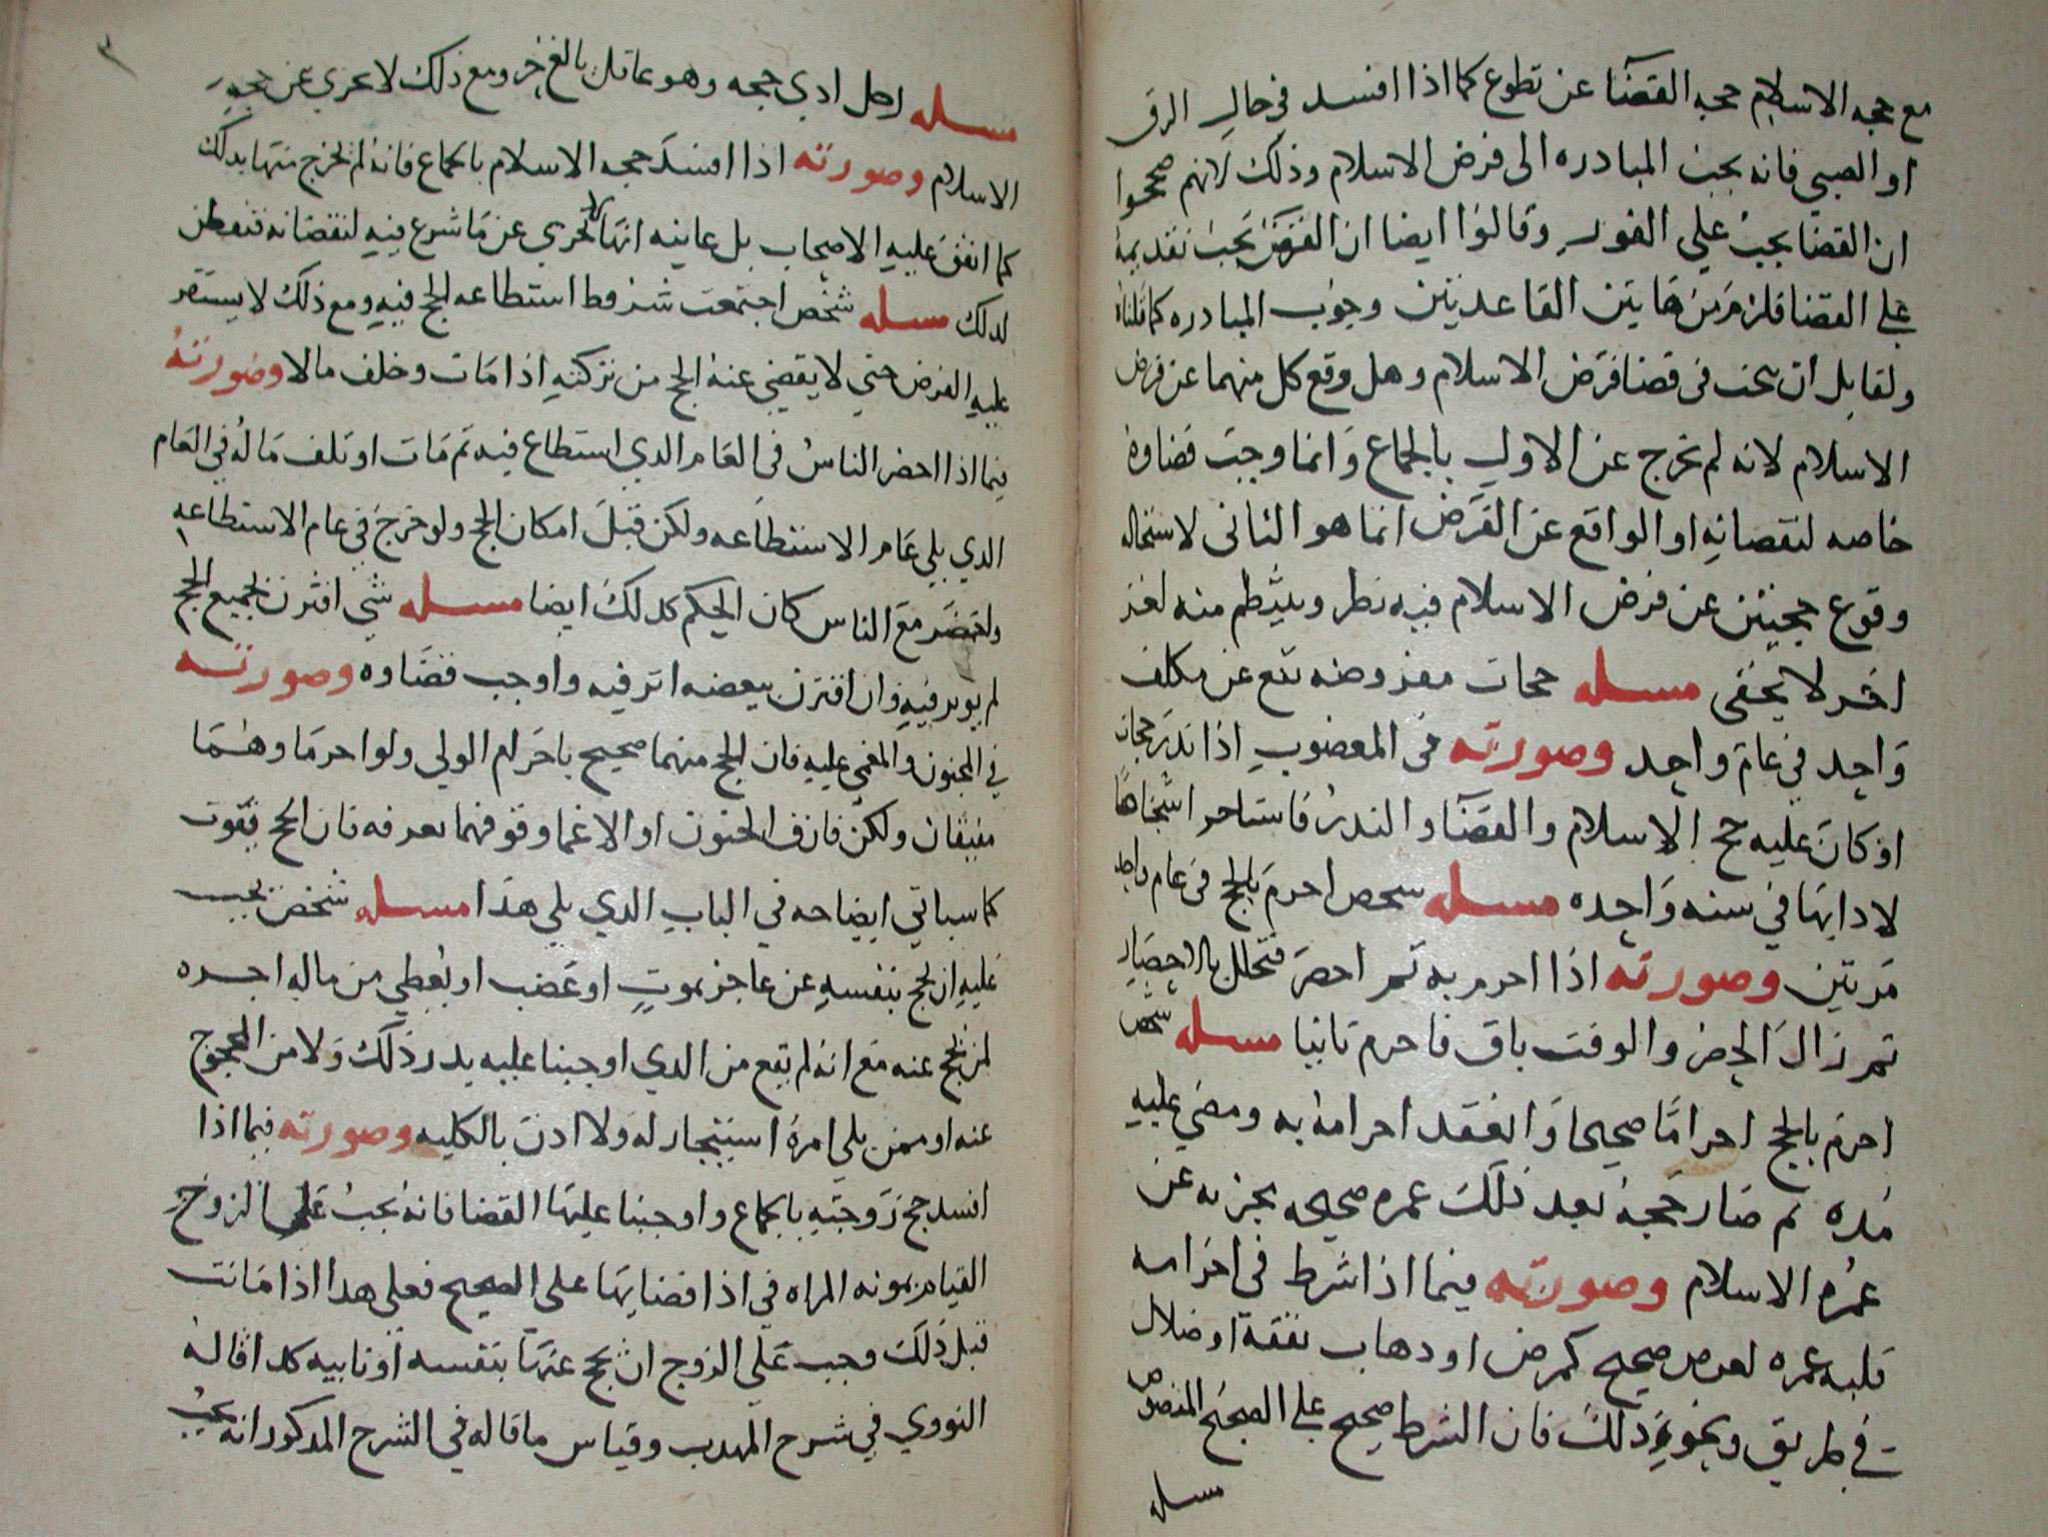 مع حجه الاسلام حجه القضآ عن تطوع كما اذا افسد في حال الرق
او الصبي فانه يجب المبادره الى فرض الاسلام وذلك لانهم صححوا
ان القضا يجب علي الفور وقالوا ايضا ان الفرض يجب تقديمه
علي القضا فلزم من هاتين القاعدتين وجوب المبادره كما قلناه
ولقايل ان يبحث في قضا فرض الاسلام وهل وقع كل منهما عن فرض
الاسلام لانه لم يخرج عن الاول بالجماع وانما وجبت قضاوه
خاصه لنقصانه او الواقع عن الفرض انما هو الثاني لاستحاله
وقوع حجتين عن فرض الاسلام فيه نظر وينتظم منه لغز
اخر لا يخفى مسله حجات مفروضه تقع عن مكلف
واحد في عام واحد وصورته في المعضوب اذا نذر حجات
او كان عليه حج الاسلام والقضآ والنذر فاستاجر اشخاصا
لادايها في سنه واحده مسله شخص احرم بالحج في عام واحد
مرتين وصورته اذا احرم به ثم احصر فتحلل بالاحصار
ثم زال الحصر والوقت باق فاحرم ثانيا مسله شخص
احرم بالحج احراما صحيحا وانعقد احرامه به ومضي عليه
مده ثم صار حجه بعد ذلك عمره صحيحه يجزيه عن
عمره الاسلام وصورته فيما اذا شرط في احرامه
قلبه عمره لغرض صحيح كمرض او ذهاب نفقة او ضلال
في طريق ونحو ذلك فان الشرط صحيح علي الصحيح المنصوص
مسله
مسله رجل ادي حجه وهو عاقل بالغ حر ومع ذلك لا تجزي عن حجه
الاسلام وصورته اذا افسد حجه الاسلام بالجماع فانه لم يخرج منها بذلك
كما اتفق عليه الاصحاب بل غايته انها لا تجزي عن ما شرع فيه لنقصانه فتفطن
لذلك مسله شخص اجتمعت شروط استطاعه الحج فيه ومع ذلك لا يستقر
عليه الفرض حتي لا يقضي عنه الحج من تركته اذا مات وخلف مالا وصورته
فيما اذا احضر الناس في العام الذي استطاع فيه ثم مات او تلف ماله في العام
الذي يلي عام الاستطاعه ولكن قبل امكان الحج ولو خرج في عام الاستطاعه
واحضر مع الناس كان الحكم كذلك ايضا مسله شي اقترن بجميع الحج
لم يوثر فيه وان اقترن ببعضه اثر فيه واوجب قضاوه وصورته
في المجنون والمغمي عليه فان الحج منهما صحيح باحرام الولي ولو احرما وهما
مفيقان ولكن قارن الجنون او الاغما وقوفهما بعرفه فان الحج يفوت
كما سياتي ايضاحه في الباب الذي يلي هذا مسله شخص يجب
عليه ان يحج بنفسه عن عاجز بموت او عضب او يعطي من ماله اجره
لمن يحج عنه مع انه لم يقع من الذي اوجبنا عليه نذر ذلك ولا من المحجوج
عنه او ممن يلي امره استيجار له ولا اذن بالكليه وصورته فيما اذا
افسد حج زوجته بالجماع واوجبنا عليها القضا فانه يجب علي الزوج
القيام بمونه المراه في اذا قضايها علي الصحيح فعلي هذا اذا ماتت
قبل ذلك وجب علي الزوج ان يحج عنها بنفسه او نايبه كذا قاله
النووي في شرح المهذب وقياس ما قاله في الشرح المذكور انه يجب